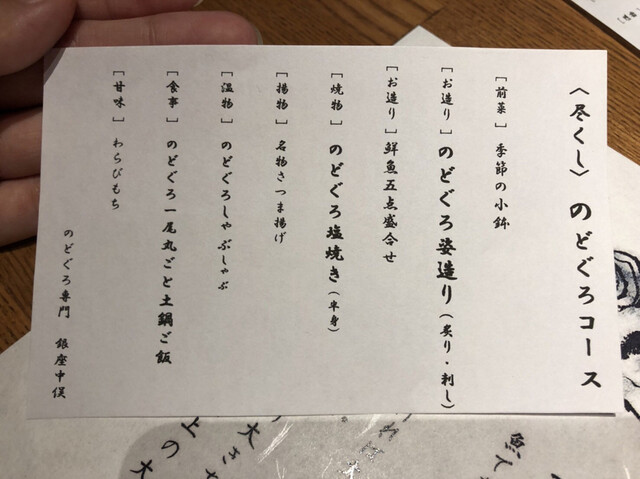 〈尽くし〉 のどぐろコース
［前菜］ 季節の小鉢
［お造り］のどぐろ姿造り（炙り・刺し）
［お造り］鮮魚五点盛合せ
［焼物］ のどぐろ塩焼き（半身）
［揚物］ 名物さつま揚げ
［温物］ のどぐろしゃぶしゃぶ
［食事］ のどぐろ一尾丸ごと土鍋ご飯
［甘味］ わらびもち
のどぐろ専門 銀座中俣